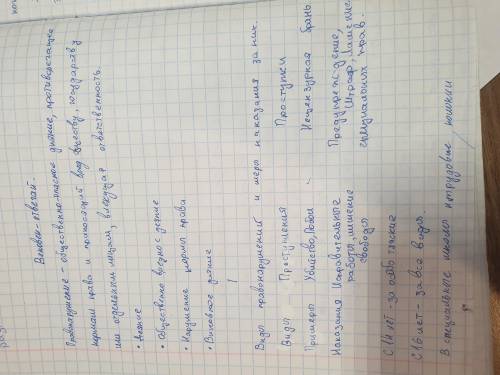 Виновен - отвечай.
Правонарушение - общественно-опасное деяние, противоречащее
нормам права и приносящий вред обществу, государству
или отдельным лицам, влекущая ответственность.
• Деяние
• Общественно вредное деяние
• Нарушение нормы права
• Виновное деяние
Виды правонарушений и меры наказания за них.
Виды Преступления Проступки
Примеры Убийство, Побои Нецензурная брань
Наказания Исправительное Предупреждение,
работы, лишение Штраф, лишение
свободы специальных прав.
С 14 лет - за особо тяжкие
С 16 лет - за все виды
В специальные школы трудовые